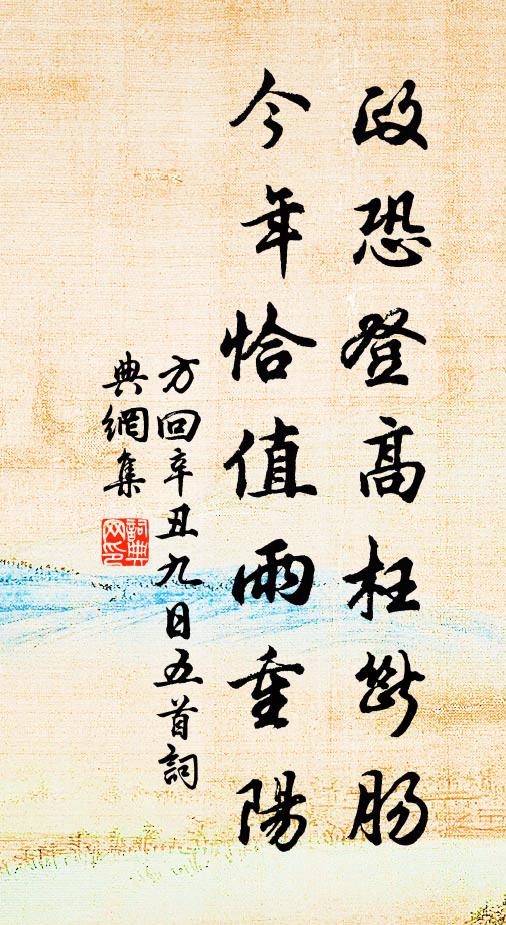 政恐登高枉斷腸
今年恰值雨重陽
方回辛丑九日五首詞
典網集
詞典
网印